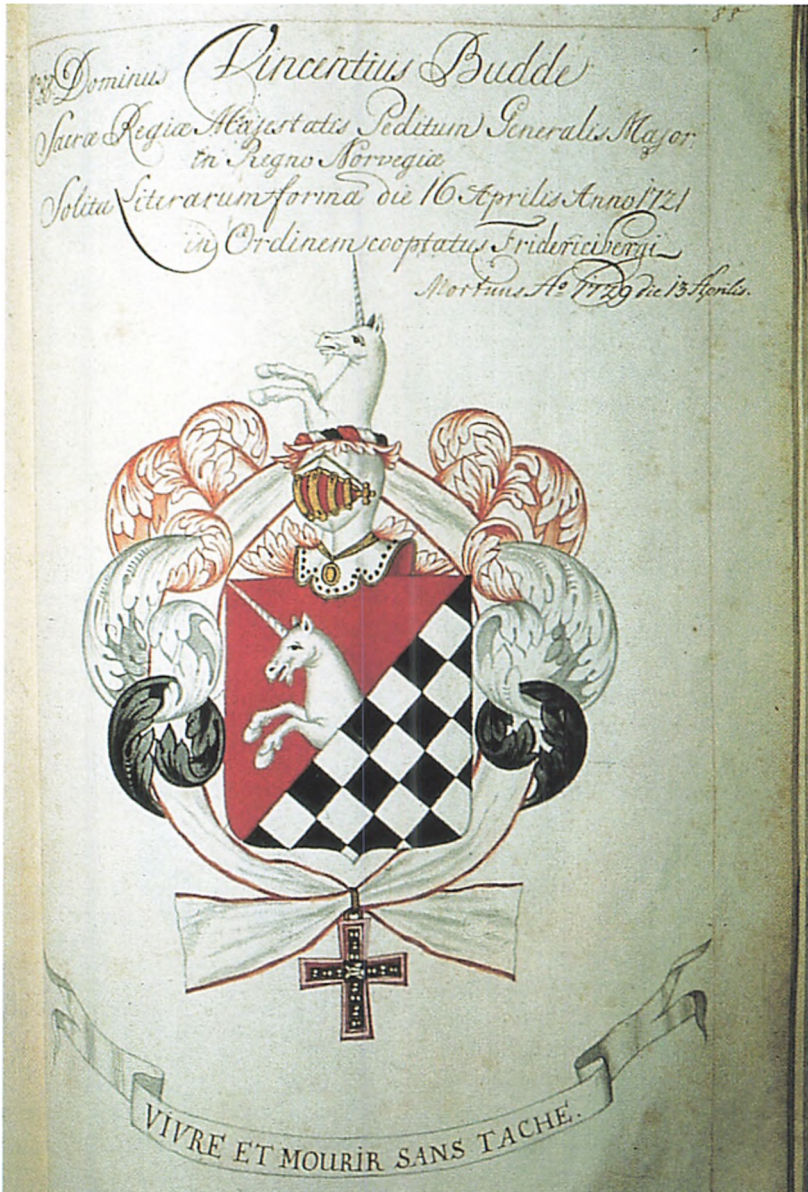 88
Dominus Vincentius Budde
Sacræ Regiæ Majestatis Peditum Generalis Major
in Regno Norvegiæ
Solita Literarum forma die 16 Aprilis Anno 1721
in Ordinem cooptatus Fridericibergi
Mortuus Aº 1729 die 13 Aprilis.
VIVRE ET MOURIR SANS TACHE.